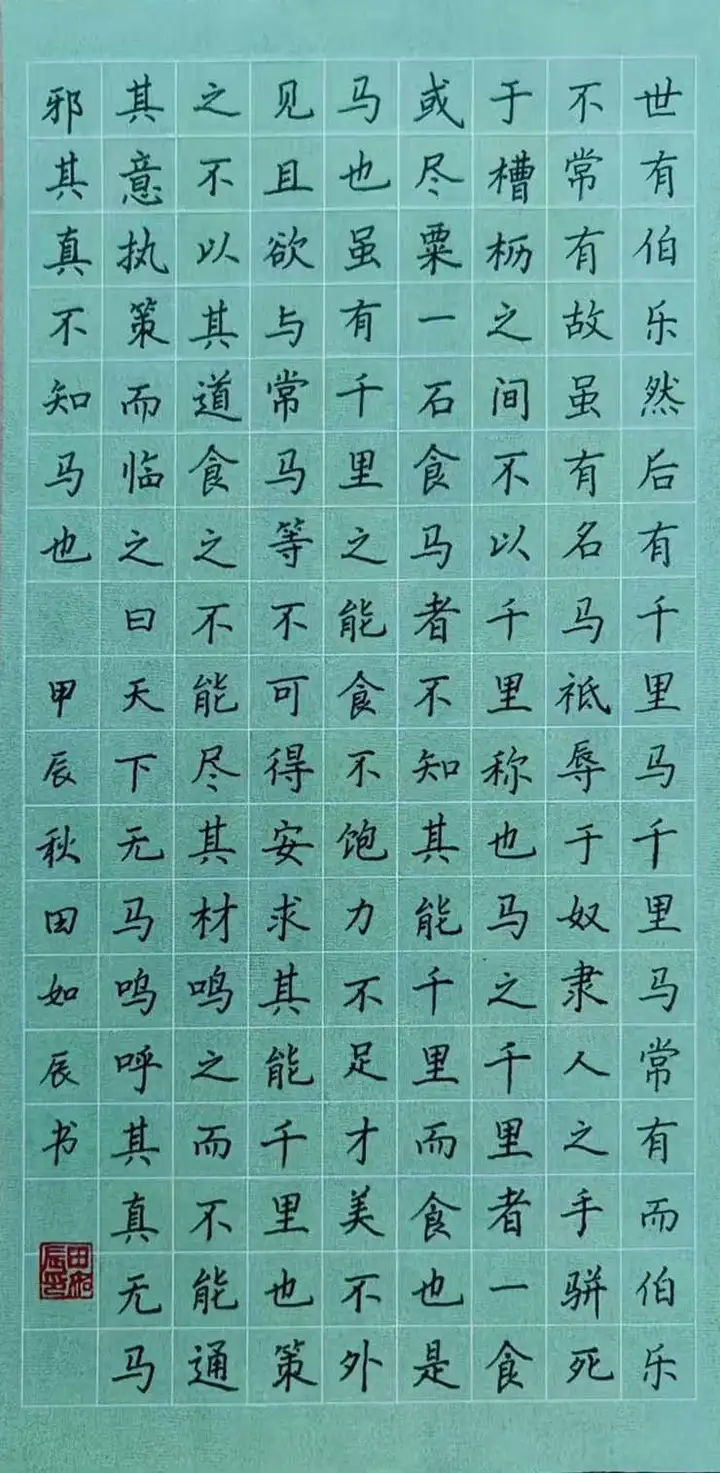 世有伯乐然后有千里马千里马常有而伯乐
不常有故虽有名马祗辱于奴隶人之手骈死
于槽枥之间不以千里称也马之千里者一食
或尽粟一石食马者不知其能千里而食也是
马也虽有千里之能食不饱力不足才美不外
见且欲与常马等不可得安求其能千里也策
之不以其道食之不能尽其材鸣之而不能通
其意执策而临之曰天下无马呜呼其真无马
邪其真不知马也 甲辰秋田如辰书
田如辰印